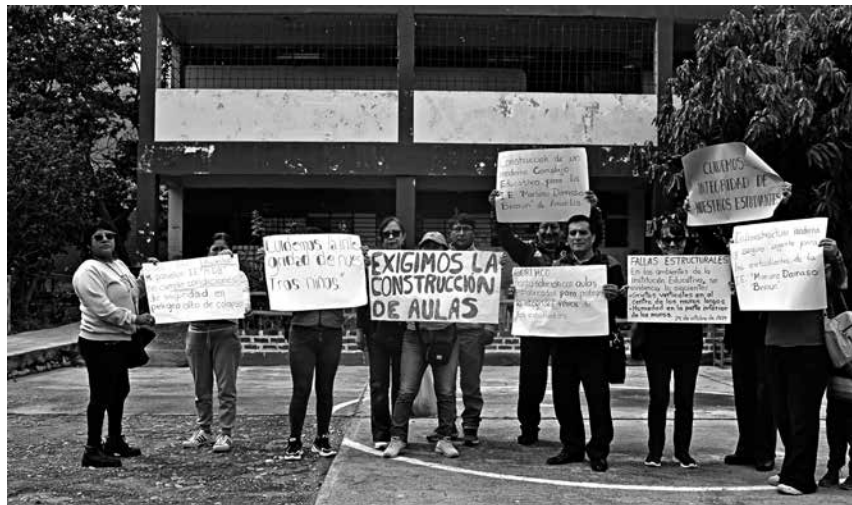 pabellón
no cumple condiciones
de seguridad en
peligro alto de colapso
Cuidemos la inte
gridad de nues
tros niños"
EXIGIMOS LA
CONSTRUCCIÓN
DE AULAS
Construcción de un
moderno Complejo
Educativo para la
I.E "Mariano Damaso
Beraun" de Amarilis
aulas
para
FALLAS ESTRUCTURALES
En los ambientes de la
Institución Educativa, se
evidencia lo siguiente:
Grietas verticales en el
centro de los muros largos
Humedad en la parte inferior
de los muros.
de octubre del
CUIDEMOS
INTEGRIDAD DE
NUESTROS ESTUDIANTES
Infraestructura moderna
y segura urgente para
los estudiantes de la
IE "Mariano Damaso
Beraun"